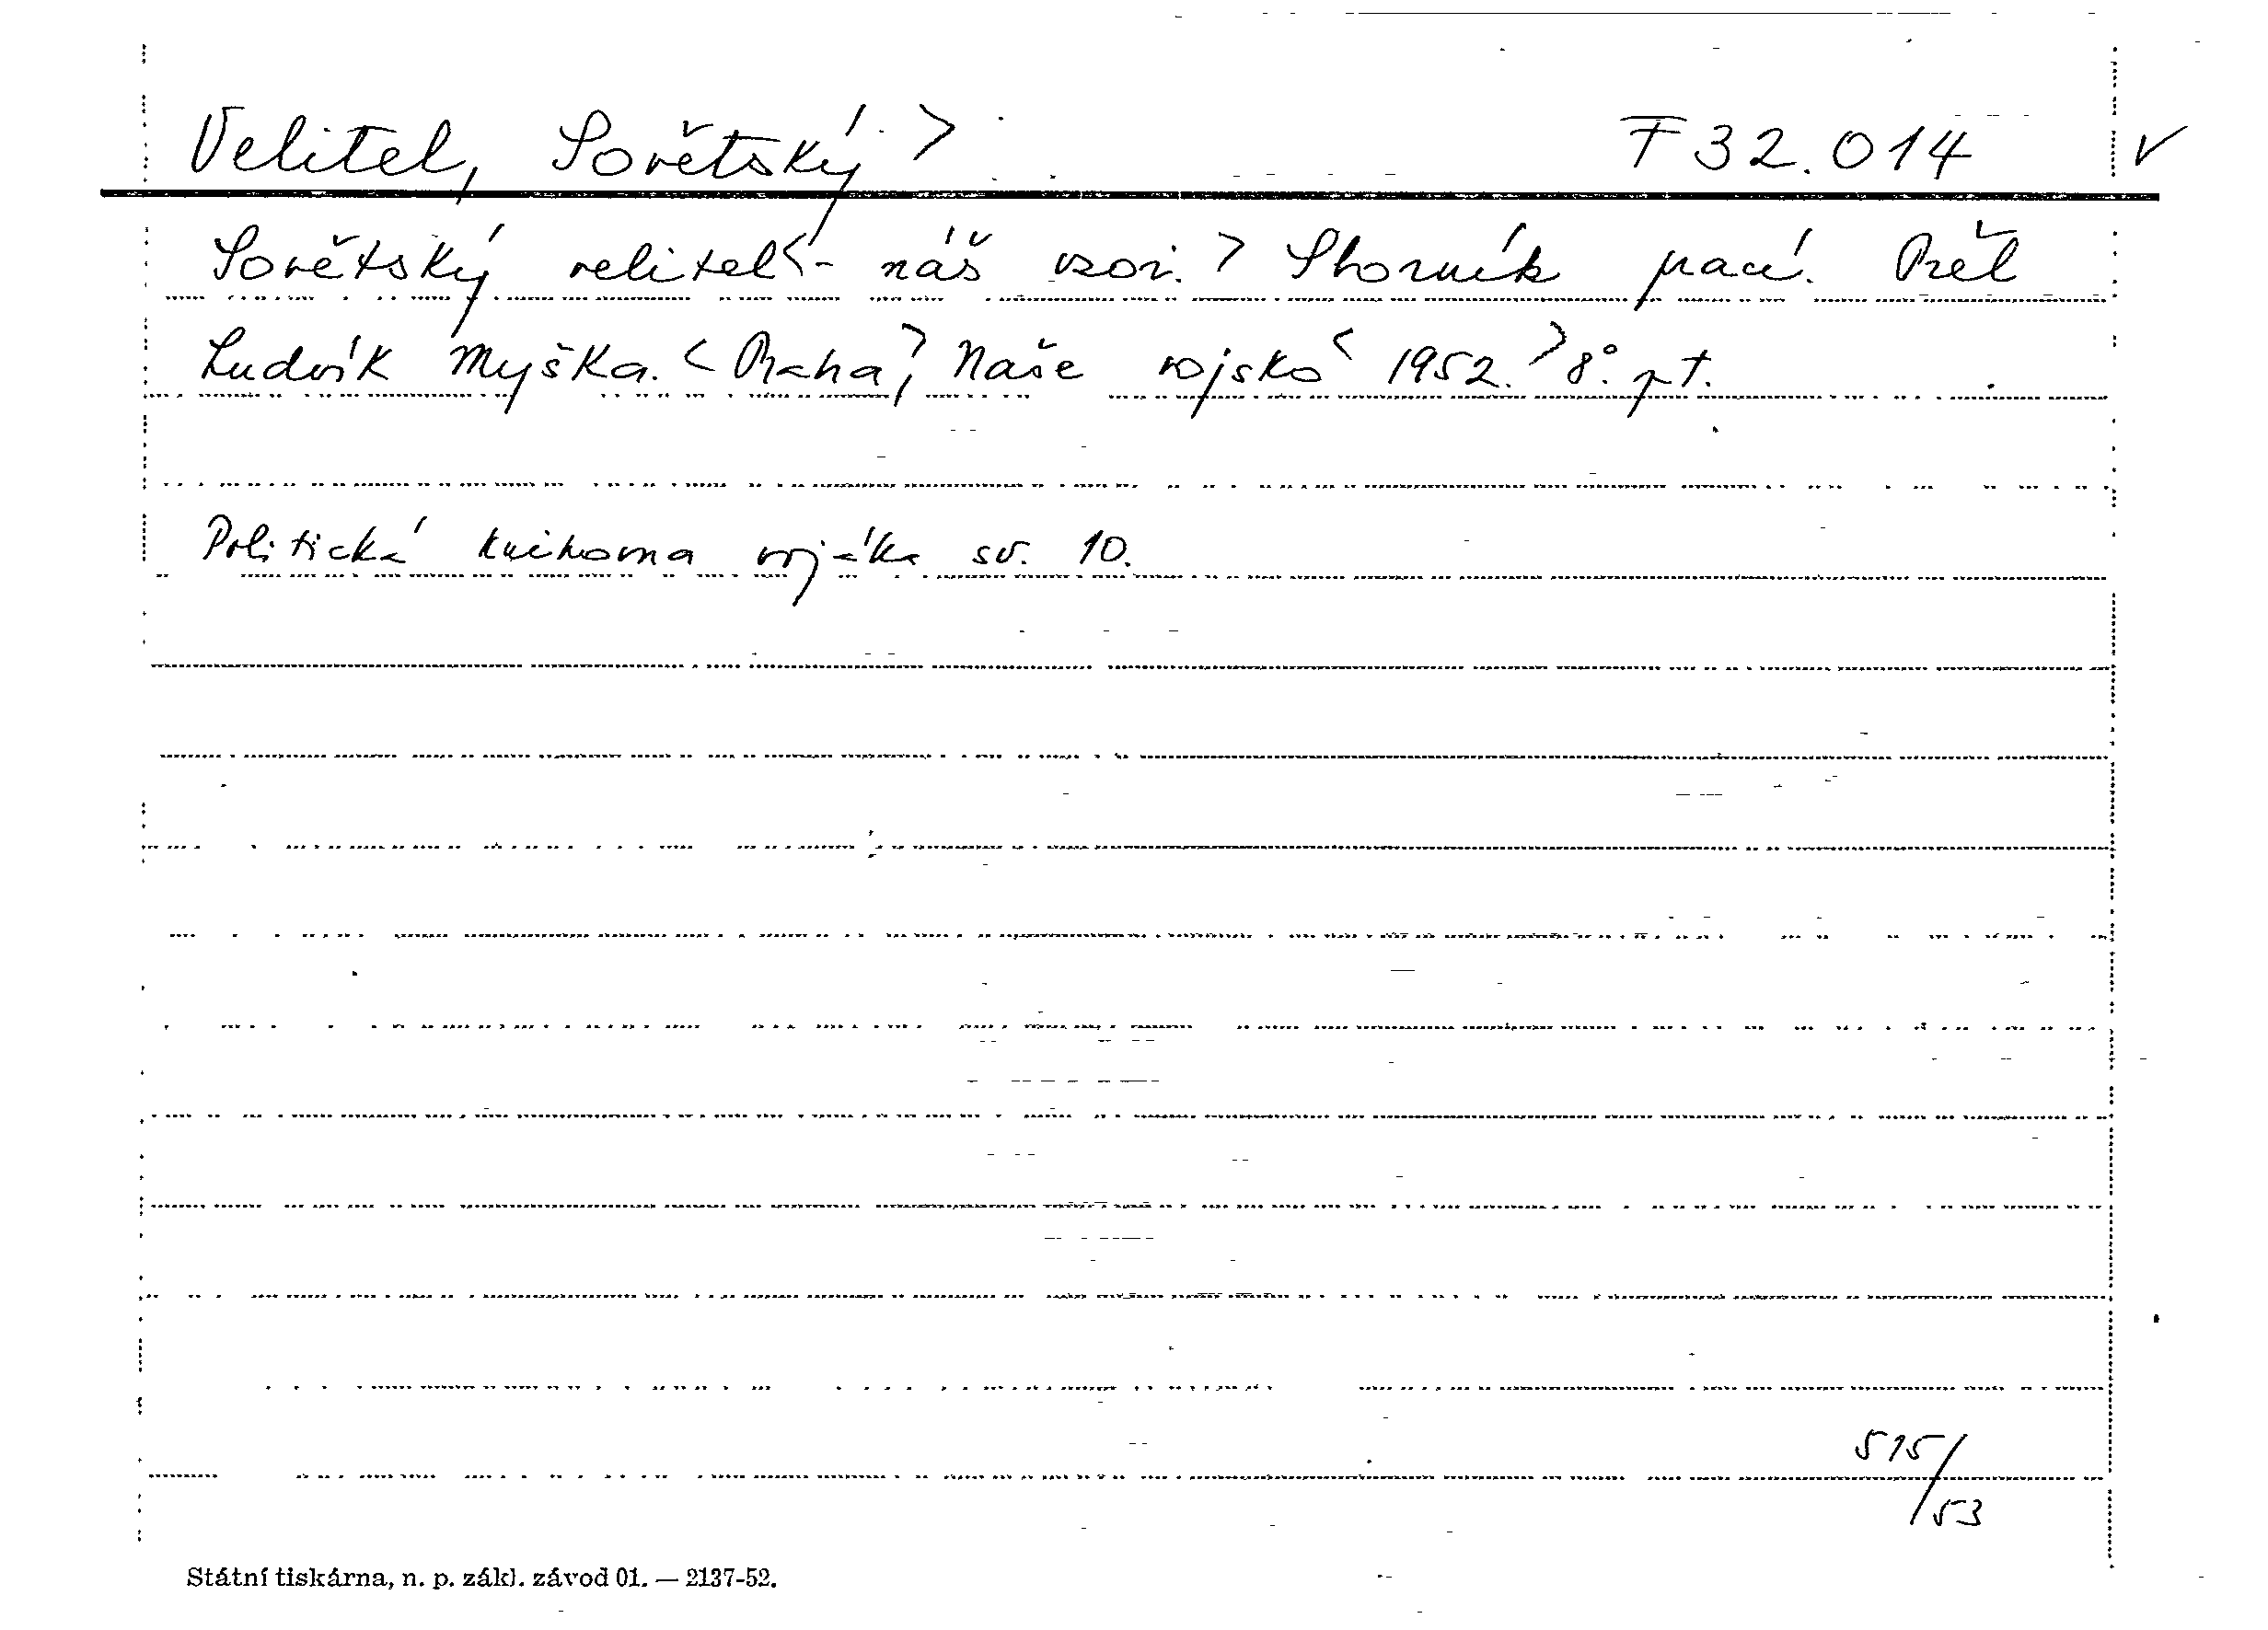 Velitel, Sovětský > F 32.014 v
Sovětský velitel < - náš vzor. > Sborník prací. Přel
Ludvík Myška. < Praha, > Naše vojsko < 1952. > 8°. pt.
Politická knihovna vojáka sv. 10.
515/53
Státní tiskárna, n. p. zákl. závod 01. — 2137-52.